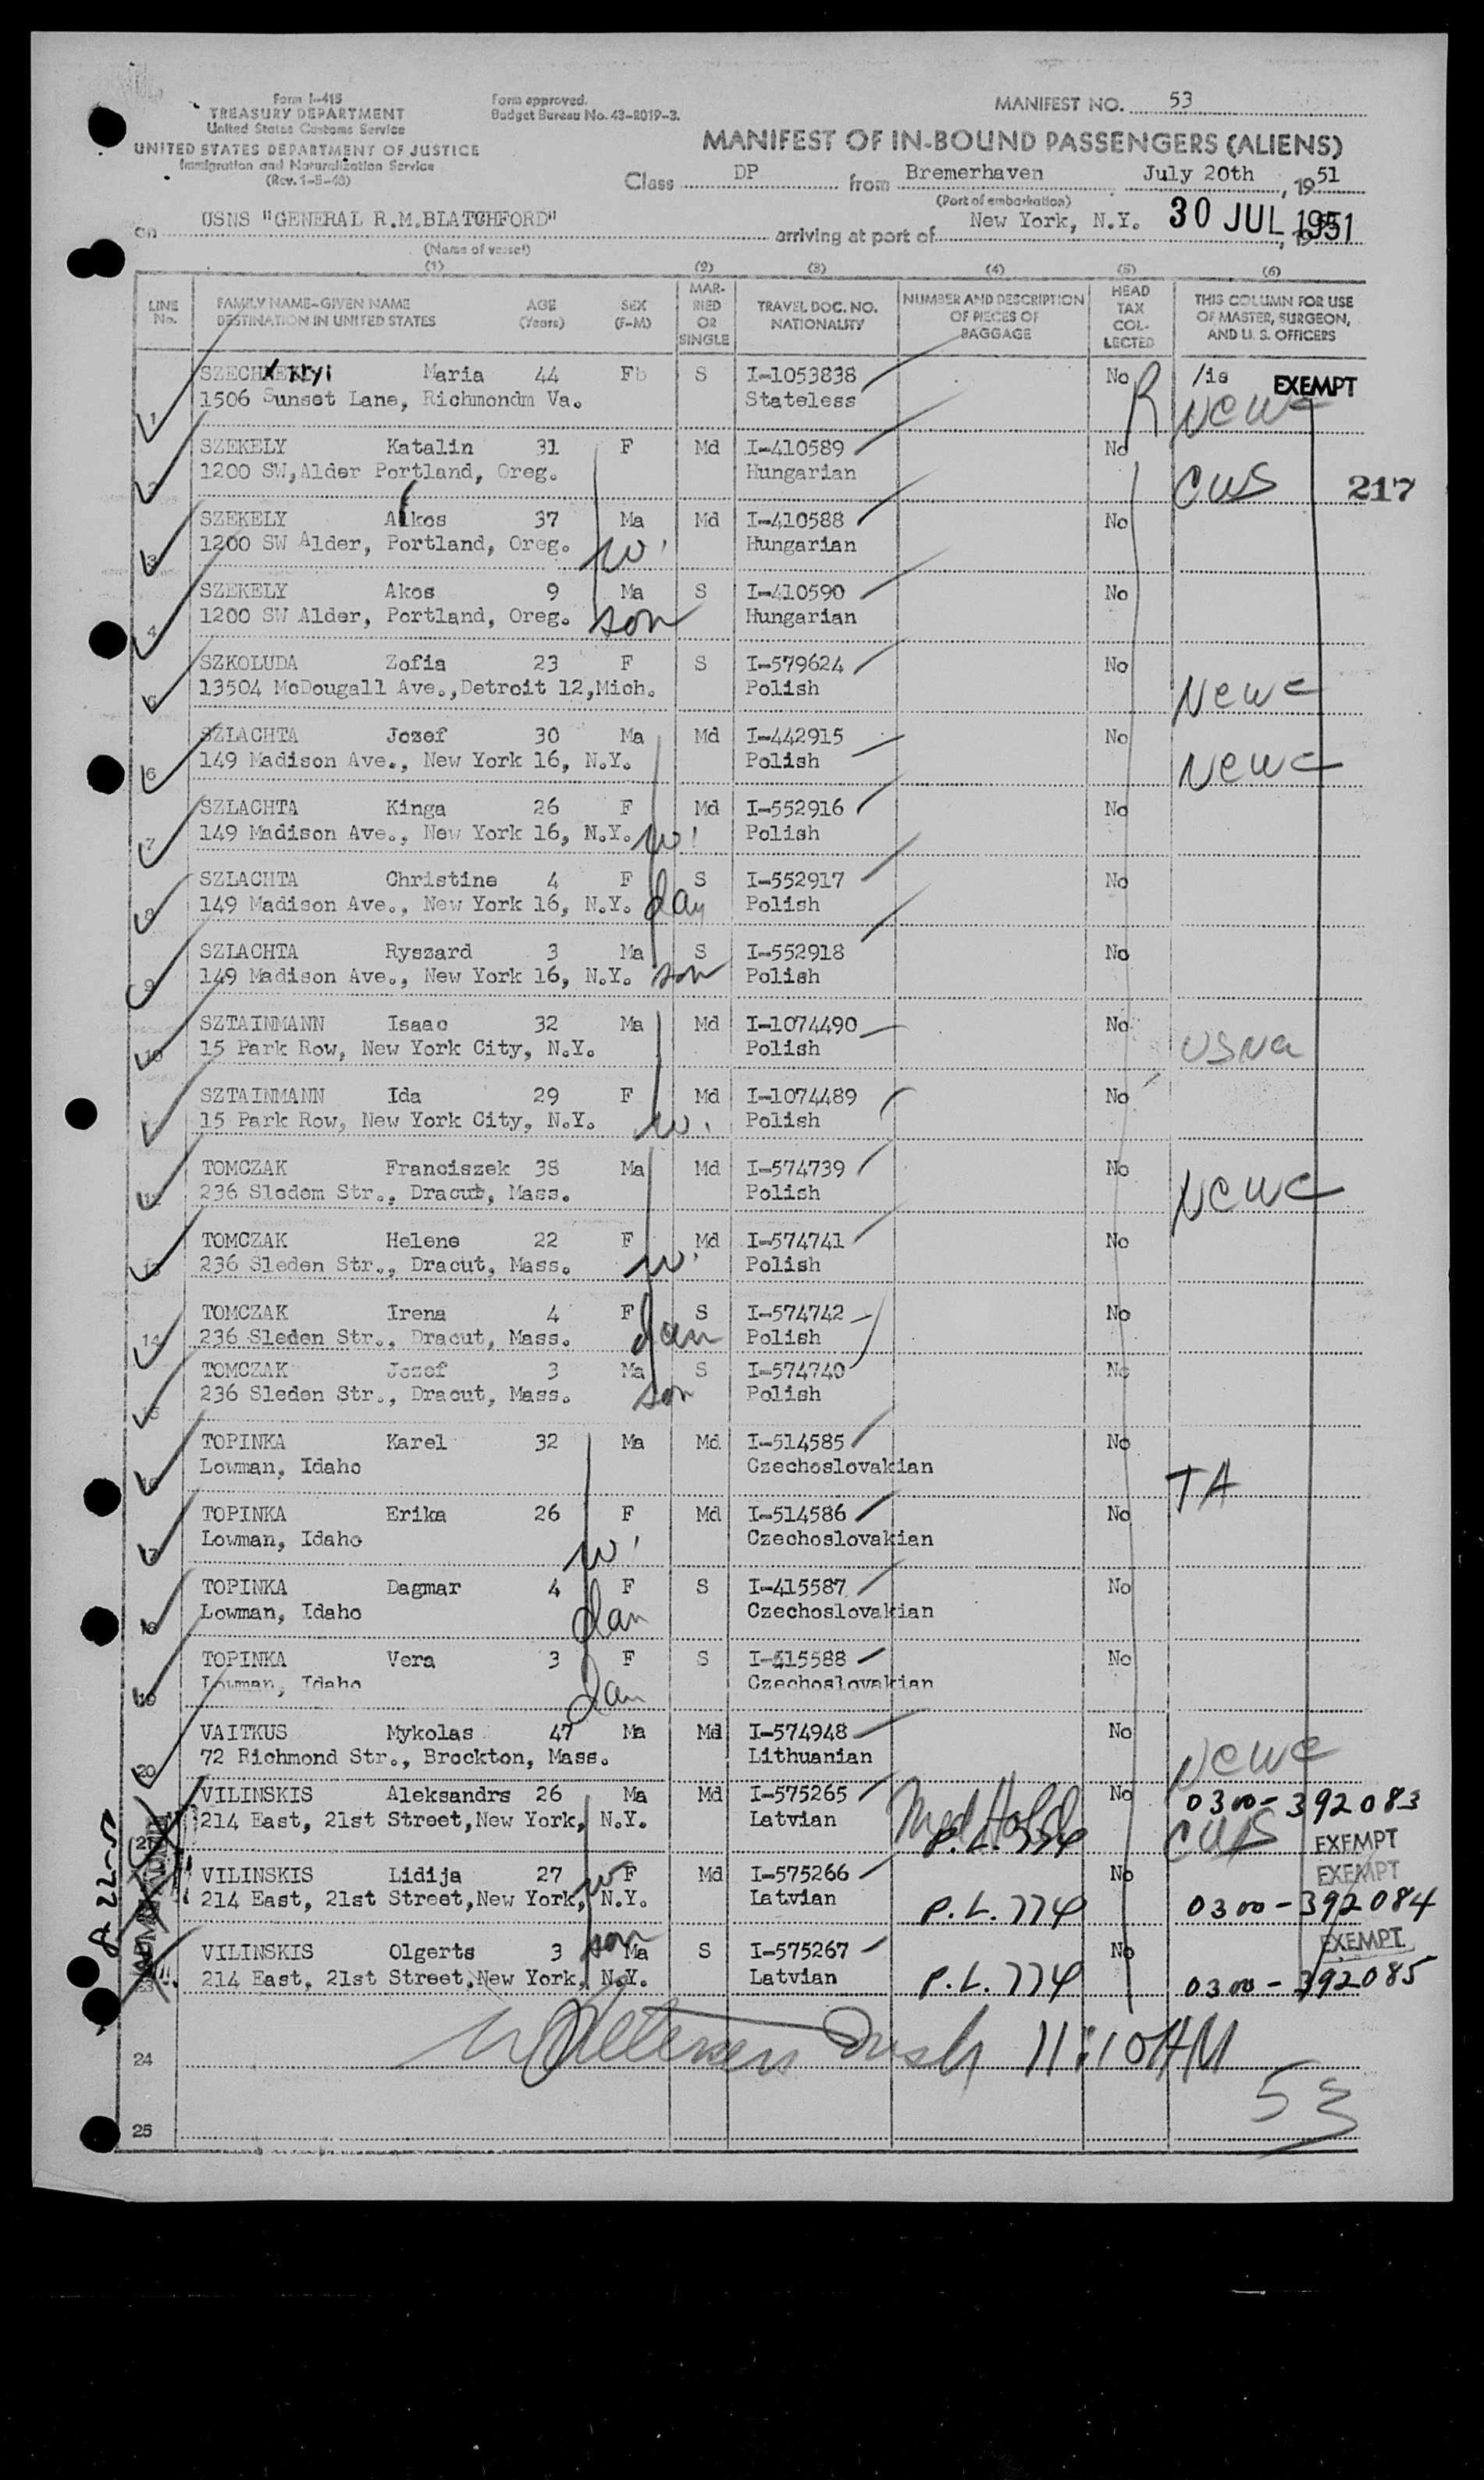 Form I-415
TREASURY DEPARTMENT
United States Customs Service
UNITED STATES DEPARTMENT OF JUSTICE
Immigration and Naturalization Service
(Rev. 1-5-48)
Form approved.
Budget Bureau No. 43-R019-3.
MANIFEST NO. 53
MANIFEST OF IN-BOUND PASSENGERS (ALIENS)
Class DP from Bremerhaven July 20th, 1951
(Port of embarkation)
on USNS "GENERAL R.M.BLATCHFORD" arriving at port of New York, N.Y. 30 JUL 1951
(Name of vessel)
(1) (2) (3) (4) (5) (6)
LINE No. FAMILY NAME-GIVEN NAME DESTINATION IN UNITED STATES AGE (Years) SEX (F-M) MARRIED OR SINGLE TRAVEL DOC. NO. NATIONALITY NUMBER AND DESCRIPTION OF PIECES OF BAGGAGE HEAD TAX COLLECTED THIS COLUMN FOR USE OF MASTER, SURGEON, AND U. S. OFFICERS
1 Maria 44 F S I-1053838 No R /is EXEMPT
1506 Sunset Lane, Richmondm Va. Stateless NCWC
2 SZEKELY Katalin 31 F Md I-410589 No
1200 SW,Alder Portland, Oreg. Hungarian CWS 217
3 SZEKELY Akos 37 Ma Md I-410588 No
1200 SW Alder, Portland, Oreg. w. Hungarian
4 SZEKELY Akos 9 Ma S I-410590 No
1200 SW Alder, Portland, Oreg. son Hungarian
5 SZKOLUDA Zofia 23 F S I-579624 No
13504 McDougall Ave.,Detroit 12,Mich. Polish NCWC
6 SZLACHTA Jozef 30 Ma Md I-442915 No
149 Madison Ave., New York 16, N.Y. Polish NCWC
7 SZLACHTA Kinga 26 F Md I-552916 No
149 Madison Ave., New York 16, N.Y. w. Polish
8 SZLACHTA Christine 4 F S I-552917 No
149 Madison Ave., New York 16, N.Y. dau Polish
9 SZLACHTA Ryszard 3 Ma S I-552918 No
149 Madison Ave., New York 16, N.Y. son Polish
10 SZTAINMANN Isaac 32 Ma Md I-1074490 No
15 Park Row, New York City, N.Y. Polish USNA
11 SZTAINMANN Ida 29 F Md I-1074489 No
15 Park Row, New York City, N.Y. w. Polish
12 TOMCZAK Franciszek 38 Ma Md I-574739 No
236 Sledem Str., Dracut, Mass. Polish NCWC
13 TOMCZAK Helene 22 F Md I-574741 No
236 Sleden Str., Dracut, Mass. w. Polish
14 TOMCZAK Irena 4 F S I-574742 No
236 Sleden Str., Dracut, Mass. dau Polish
15 TOMCZAK Jozef 3 Ma S I-574740 No
236 Sleden Str., Dracut, Mass. son Polish
16 TOPINKA Karel 32 Ma Md I-514585 No
Lowman, Idaho Czechoslovakian TA
17 TOPINKA Erika 26 F Md I-514586 No
Lowman, Idaho w. Czechoslovakian
18 TOPINKA Dagmar 4 F S I-415587 No
Lowman, Idaho dau Czechoslovakian
19 TOPINKA Vera 3 F S I-415588 No
Lowman, Idaho dau Czechoslovakian
20 VAITKUS Mykolas 47 Ma Md I-574948 No
72 Richmond Str., Brockton, Mass. Lithuanian NCWC
21 VILINSKIS Aleksandrs 26 Ma Md I-575265 Med Hold No 0300-392083
214 East, 21st Street,New York, N.Y. Latvian P.L. 774 CWS EXEMPT
VILINSKIS Lidija 27 w F Md I-575266 No EXEMPT
214 East, 21st Street,New York, N.Y. Latvian P.L. 774 0300-392084
23 VILINSKIS Olgerts 3 son Ma S I-575267 No EXEMPT
214 East, 21st Street,New York, N.Y. Latvian P.L. 774 0300-392085
24 11:10AM
53
25